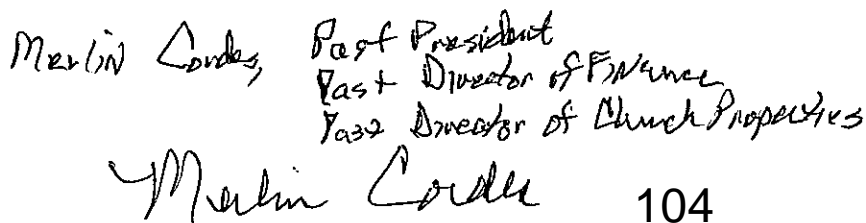 Merlin Cordes, Past President
Past Director of Finance
Past Director of Church Properties
Merlin Cordes
104